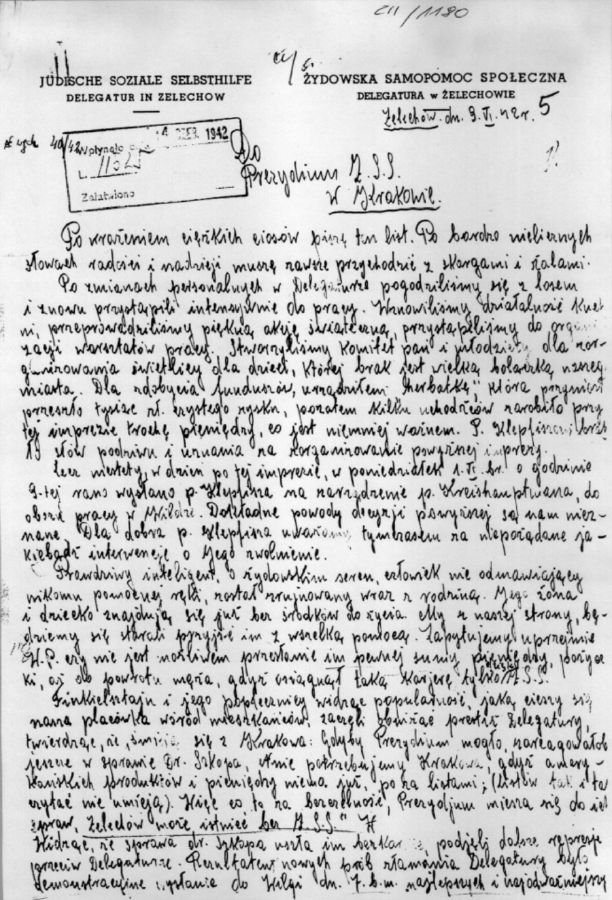 CII/1180
JÜDISCHE SOZIALE SELBSTHILFE
DELEGATUR IN ZELECHOW
ŻYDOWSKA SAMOPOMOC SPOŁECZNA
DELEGATURA w ŻELECHOWIE
Żelechów dn. 9. VI. 42 r. 5
Wpłynęło 1942
L.
Załatwiono
Do
Prezydium Ż.S.S.
w Krakowie.
Po wrażeniem ciężkich ciosów piszę ten list. Po bardzo nielicznych
słowach radości i nadzieji muszę zawsze przychodzić z skargami i żalami.
Po zmianach personalnych w Delegaturze pogodziliśmy się z losem
i znowu przystąpili intensywnie do pracy. Wznowiliśmy działalność kuch
ni, przeprowadziliśmy piękną akcję świąteczną, przystąpiliśmy do organi
zacji warsztatów pracy. Stworzyliśmy komitet pań i młodzieży dla zor-
ganizowania świetlicy dla dzieci, której brak jest wielką bolączką naszeg
miasta. Dla zdobycia funduszów, urządziłem "herbatkę", która przyniosł
przeszło tysiąc zł. czystego zysku, pozatem kilku uchodźców zarobiło przy
tej imprezie trochę pieniędzy, co jest niemniej ważnem. P. Klepfiszowi
słów podziwu i uznania za zorganizowanie powyższej imprezy.
Lecz niestety, w dzień po tej imprezie, w poniedziałek 1. VI. br. o godzinie
9-tej rano wysłano p. Klepfisza na zarządzenie p. Kreishauptmana, do
obozu pracy w Wildze. Dokładne powody decyzji powyższej są nam niez-
nane. Dla dobra p. Klepfisza uważamy tymczasem za niepożądane ja-
kiebądź interwencje o Jego zwolnienie.
Prawdziwy inteligent, o żydowskim sercu, człowiek nie odmawiający
nikomu pomocnej ręki, został zrujnowany wraz z rodziną. Jego żona
i dziecko znajdują się już bez środków do życia. My z naszej strony, bę-
dziemy się starali przyjść im z wszelką pomocą. Zapytujemy uprzejmie
W.P. czy nie jest możliwem przesłanie im pewnej sumy pieniędzy, pożycz
ki, aż do powrotu męża, gdyż osiągnął taką karjerę tylko Ż.S.S.
Finkielsztajn i jego poplecznicy widząc popularność, jaką cieszy się
nasza placówka wśród mieszkańców, zaczęli obniżać prestiż Delegatury,
twierdząc, że "śmieją się z Krakowa. Gdyby Prezydium mogło, zareagowałob
jeszcze w sprawie Dr. Szkopa. Nie potrzebujemy Krakowa, gdyż amery-
kańskich produktów i pieniędzy niema już, poza listami; (listów tak i ta
czytać nie umieją). Więc co to za bezczelność, Prezydjum miesza się do
spraw, Żelechów może istnieć bez Ż.S.S."
Widząc, że sprawa dr. Szkopa uszła im bezkarnie, podjęli dalsze represje
przeciw Delegaturze. Rezultatem nowych prób złamania Delegatury było
demonstracyjne wysłanie do Wilgi dn. 7. b.m. najlepszych i najodważniejszy